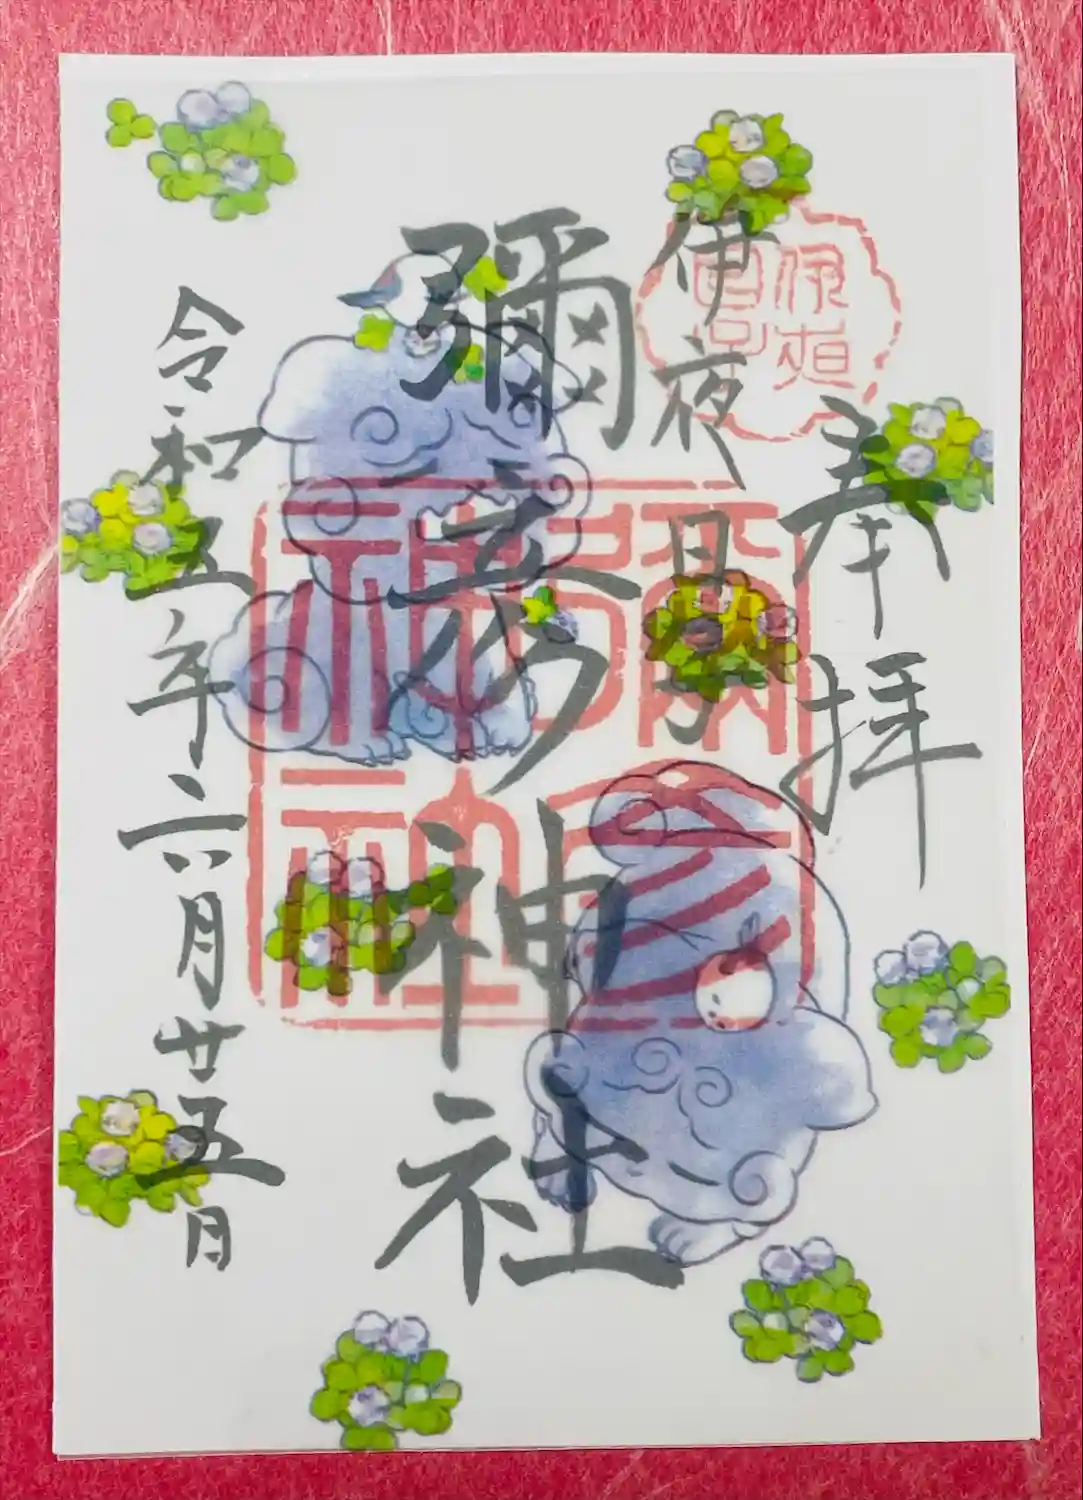 奉拝
伊夜日子
彌彦神社
令和五年六月廿五日
彌彦
神社